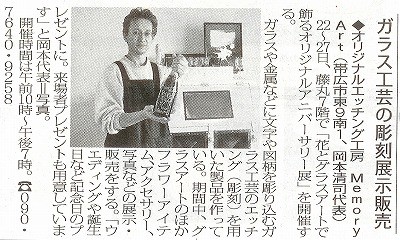 ガラス工芸の彫刻展示販売
◆オリジナルエッチング工房 Memory
Art（帯広市東9南1、岡本清司代表）
22～27日、藤丸7階で「花とグラスアートで
飾るオリジナルアニバーサリー展」を開催す
る。
ガラスや金属などに文字や図柄を彫り込むガ
ラス工芸のエッチ
ング（彫刻）を用
いた製品を作って
いる。期間中、グ
ラスアートのほか
フラワーアイテ
ム、アクセサリー、
写真などの展示・
販売をする。「ウ
エディングや誕生
日など記念日のプ
レゼントに。来場者プレゼントも用意していま
す」と岡本代表＝写真。
開催時間は午前10時～午後7時。☎090・
7640・9258